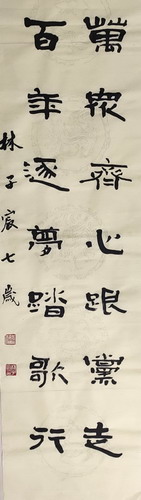 萬衆齊心跟黨走
百年逐夢踏歌行
林子宸七歲